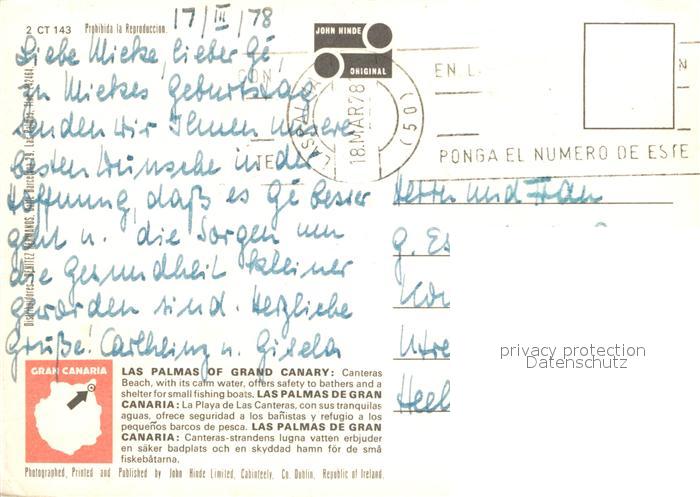 2 CT 143 Prohibida la Reproduccion.
17/III/78
JOHN HINDE
ORIGINAL
Liebe Mieke, lieber Gé,
zu Miekes Geburtstag
senden wir Ihnen unsere
besten Wünsche in der
Hoffnung, daß es Gé besser
geht u. die Sorgen um
die Gesundheit kleiner
geworden sind. Herzliche
Grüße! Carlheinz u. Gisela
EN L
18 MAR 78
(50)
PONGA EL NUMERO DE ESTE
Herrn und Frau
G. Es
Kon
Utre
Heel
privacy protection
Datenschutz
GRAN CANARIA
LAS PALMAS OF GRAND CANARY: Canteras
Beach, with its calm water, offers safety to bathers and a
shelter for small fishing boats. LAS PALMAS DE GRAN
CANARIA: La Playa de Las Canteras, con sus tranquilas
aguas, ofrece seguridad a los bañistas y refugio a los
pequeños barcos de pesca. LAS PALMAS DE GRAN
CANARIA: Canteras-strandens lugna vatten erbjuder
en säker badplats och en skyddad hamn för de små
fiskebåtarna.
Photographed, Printed and Published by John Hinde Limited, Cabinteely, Co. Dublin, Republic of Ireland.